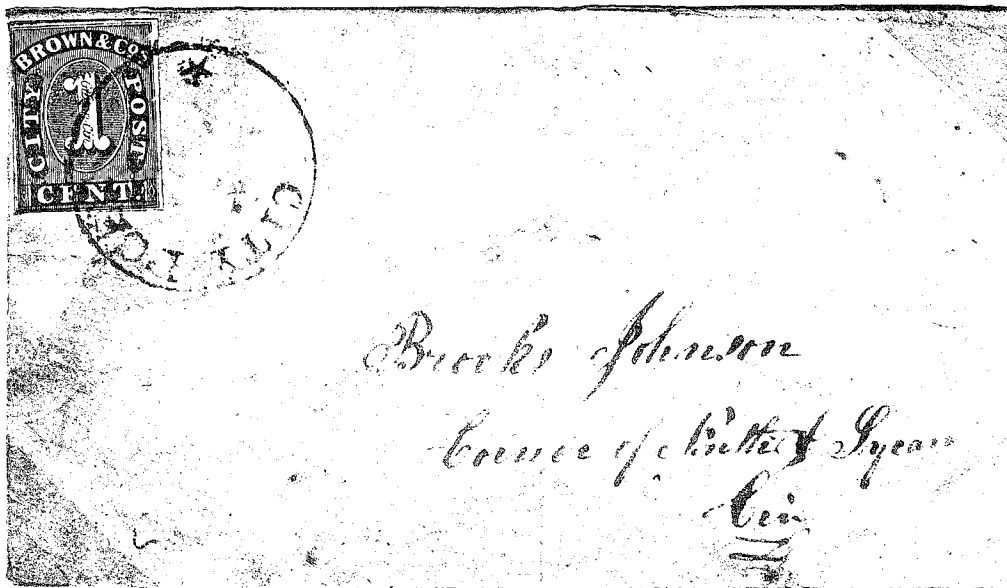 BROWN & Cos
CITY POST
1
CENT.
CITY POST
Brooks Johnson
Corner of & Sycam
Cin